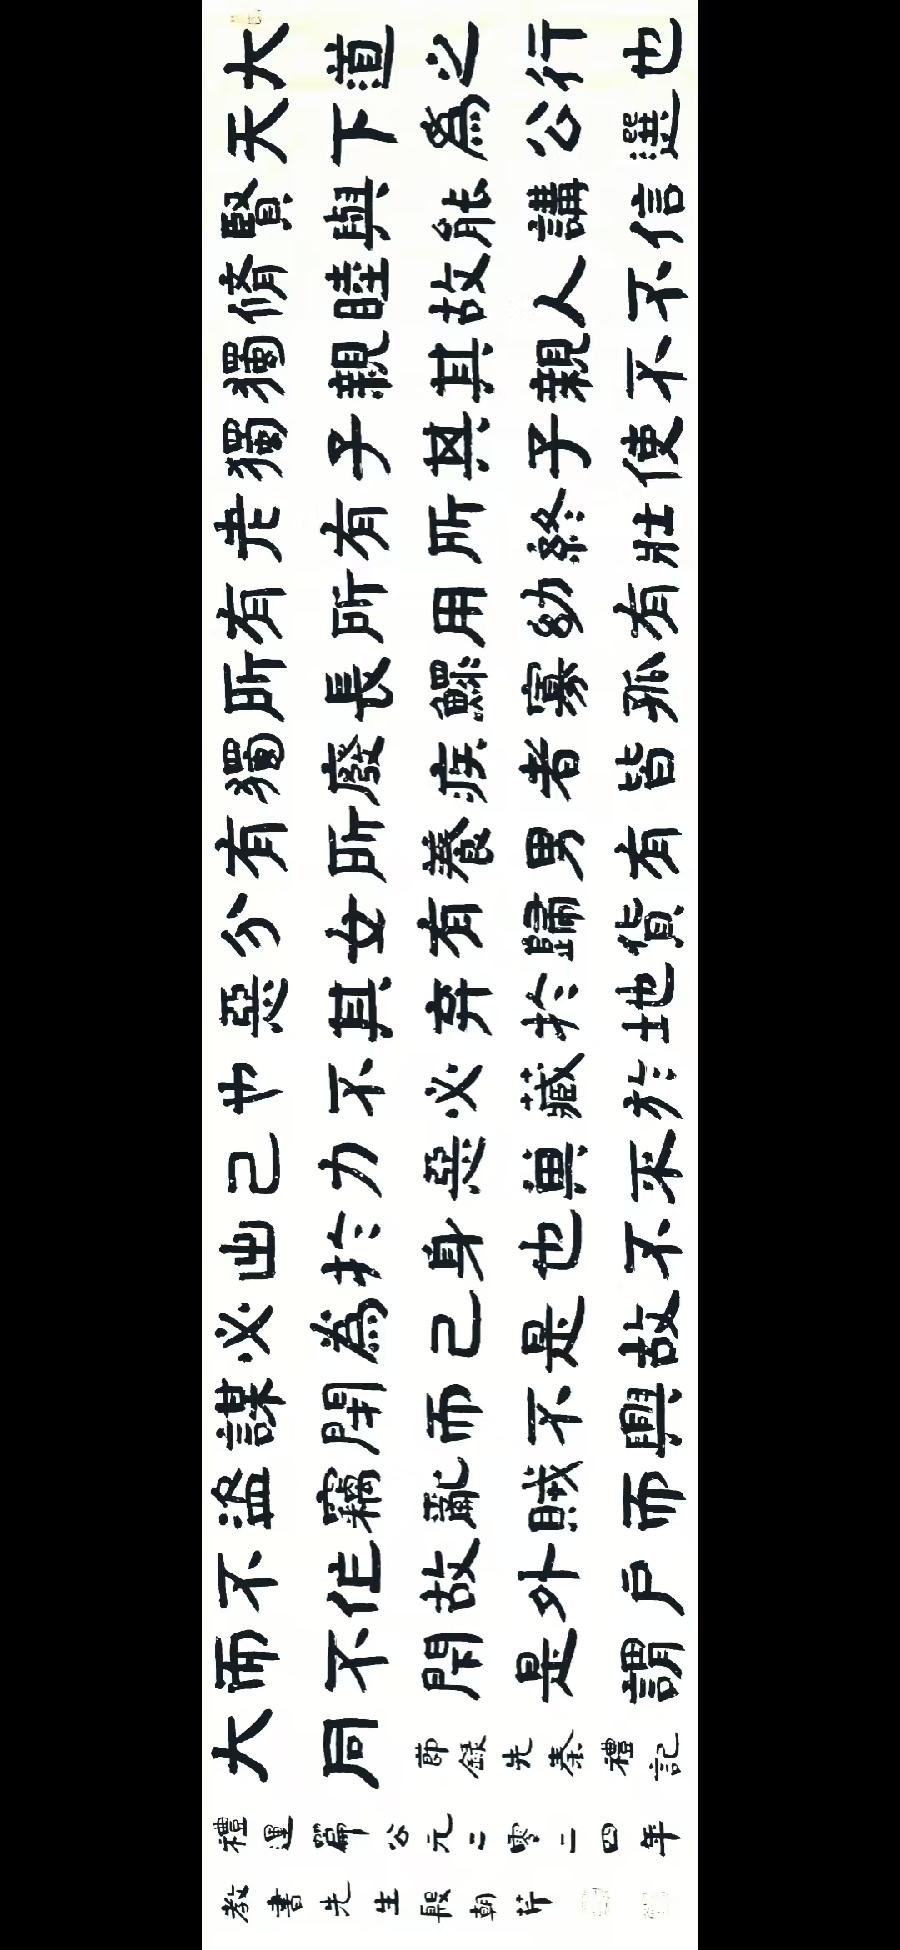 大道之行也
天下為公選
賢與能講信
脩睦故人不
獨親其親不
獨子其子使
老有所終壯
有所用幼有
所長鰥寡孤
獨廢疾者皆
有所養男有
分女有歸貨
惡其弃於地
也不必藏於
己力惡其不
出於身也不
必為己是故
謀閉而不興
盜竊亂賊而
不作故外戶
而不閉是謂
大同 節録先秦禮記
禮運篇公元二零二四年
教書先生殷朝芹